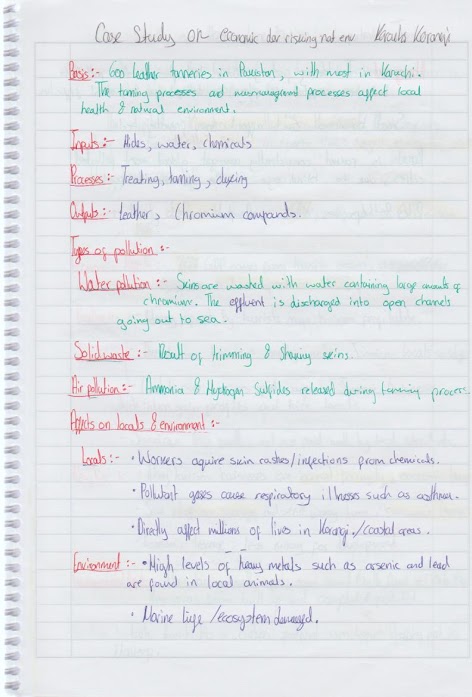 Case Study on economic dev risking nat env Karachi Korangi
Basis:- 600 leather tanneries in Pakistan, with most in Karachi.
The tanning processes and processes affect local
health & natural environment.
Inputs:- Hides, water, chemicals
Processes:- Treating, tanning, dying
Outputs:- Leather, Chromium compounds.
Types of pollution:-
Water pollution:- Skins are washed with water containing large amounts of
chromium. The effluent is discharged into open channels
going out to sea.
Solid waste:- Result of trimming & shaving skins.
Air pollution:- Ammonia & Hydrogen Sulfides released during tanning process
Affects on locals & environment:-
Locals:- • Workers aquire skin rashes/infections from chemicals.
• Pollutant gases cause respiratory illnesses such as asthma.
• Directly affect millions of lives in Korangi/coastal areas.
Environment:- • High levels of heavy metals such as arsenic and lead
are found in local animals.
• Marine life/ecosystem damaged.